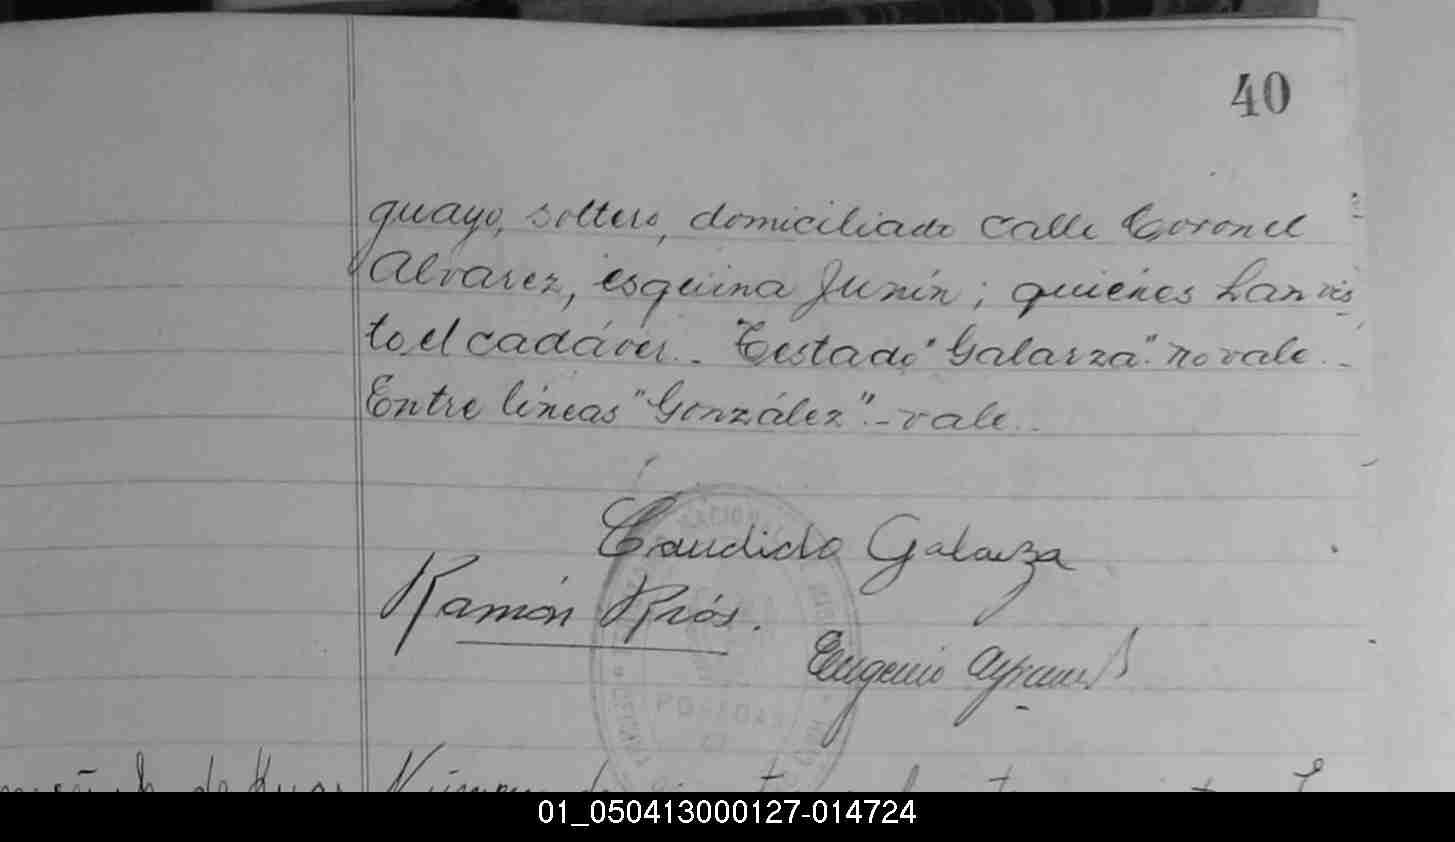 40
guayo, soltero, domiciliado calle Coronel
Alvarez, esquina Junín; quiénes han vis
to el cadáver.. Testado "Galarza" no vale..
Entre líneas "González".-vale..
Candido Galarza
Ramón Ríos.
Eugenio
POSADAS
01_050413000127-014724